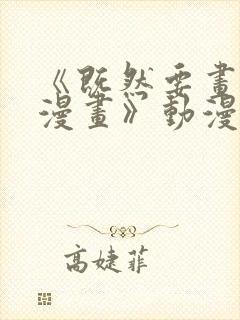 《既然要畫
漫畫》動漫
高婕菲